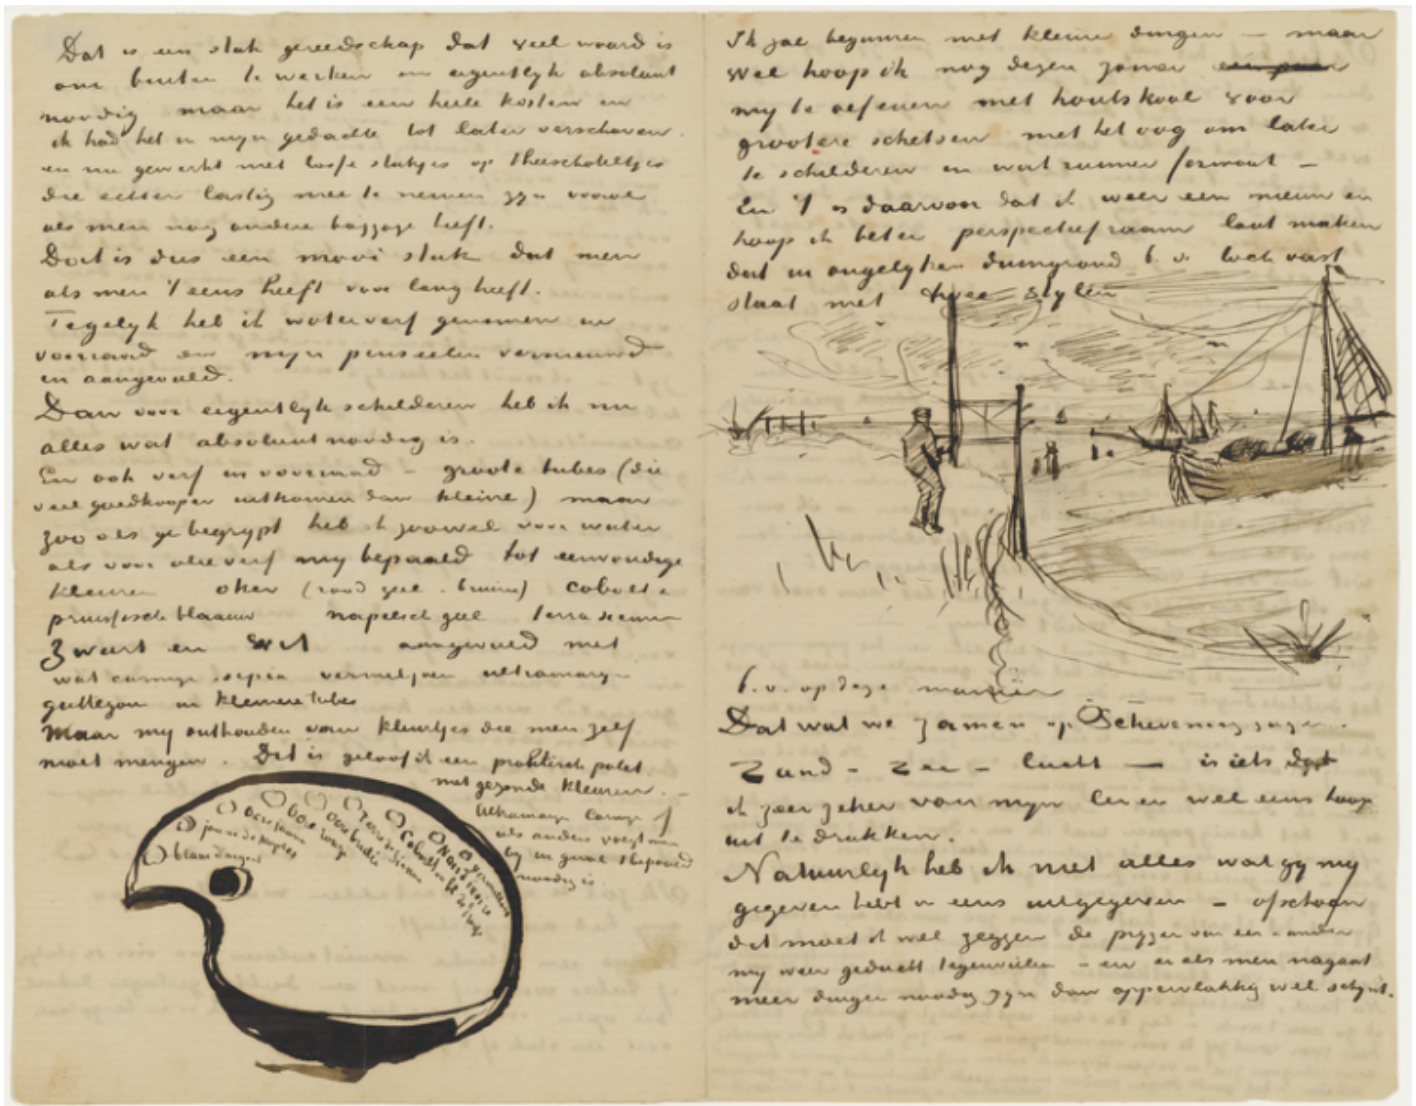 Dat is een stuk gereedschap dat veel waard is
om buiten te werken en eigentlyk absoluut
noodig maar het is een heele kosten en
ik had het in myn gedachte tot later verschoven
en nu gewerkt met losse stukjes op theeschoteltjes
die echter lastig mee te nemen zyn vooral
als men nog andere baggage heeft.
Dat is dus een mooi stuk dat men
als men 't eens heeft voor lang heeft.
Tegelyk heb ik waterverf genomen in
voorraad en myn penseelen vernieuwd
en aangevuld.
Dan voor eigentlyk schilderen heb ik nu
alles wat absoluut noodig is.
En ook verf in voorraad – groote tubes (die
veel goedkooper uitkomen dan kleine) maar
zoo als ge begrypt heb ik zoowel voor water
als voor olieverf my bepaald tot eenvoudige
kleuren oker (rood geel . bruin) cobolt &
pruissisch blaauw napelsch geel terra sienna
Zwart en Wit aangevuld met
wat carmyn sepia vermiljoen ultramaryn
guttegom in kleinere tubes
Maar my onthouden van kleurtjes die men zelf
moet mengen. Dit is geloof ik een praktisch palet
met gezonde kleuren.
Ultramaryn Carmyn
als anders voegt men
by in geval 't bepaald
noodig is
blanc d'argent
jaune de Naples
Ocre jaune
Ocre rouge
Ocre brulée
Terre de Sienne
Cobalt
Noir d'ivoire
Vermillon
Ik zal beginnen met kleine dingen – maar
wel hoop ik nog dezen zomer
my te oefenen met houtskool voor
grootere schetsen met het oog om later
te schilderen in wat ruimer formaat –
En 't is daarvoor dat ik weer een nieuw en
hoop ik beter perspectiefraam laat maken
dat in ongelyken duingrond b.v. toch vast
staat met twee stylen
b.v. op deze manier
Dat wat we zamen op Schevening zagen.
Zand – Zee – lucht — is iets dat
ik zeer zeker van myn leven wel eens hoop
uit te drukken.
Natuurlyk heb ik niet alles wat gy my
gegeven hebt in eens uitgegeven – ofschoon
dit moet ik wel zeggen de pryzen van een & ander
my weer geducht tegenvielen – en er als men nagaat
meer dingen noodig zyn dan oppervlakkig wel schynt.